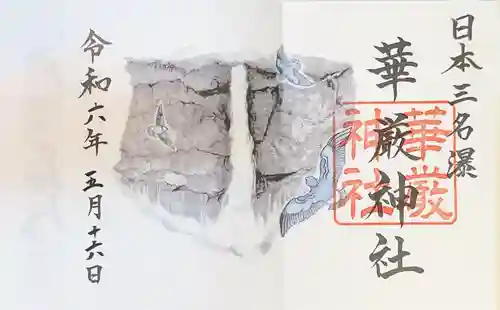 日本三名瀑
華厳神社
華嚴
神社
令和六年 五月十六日